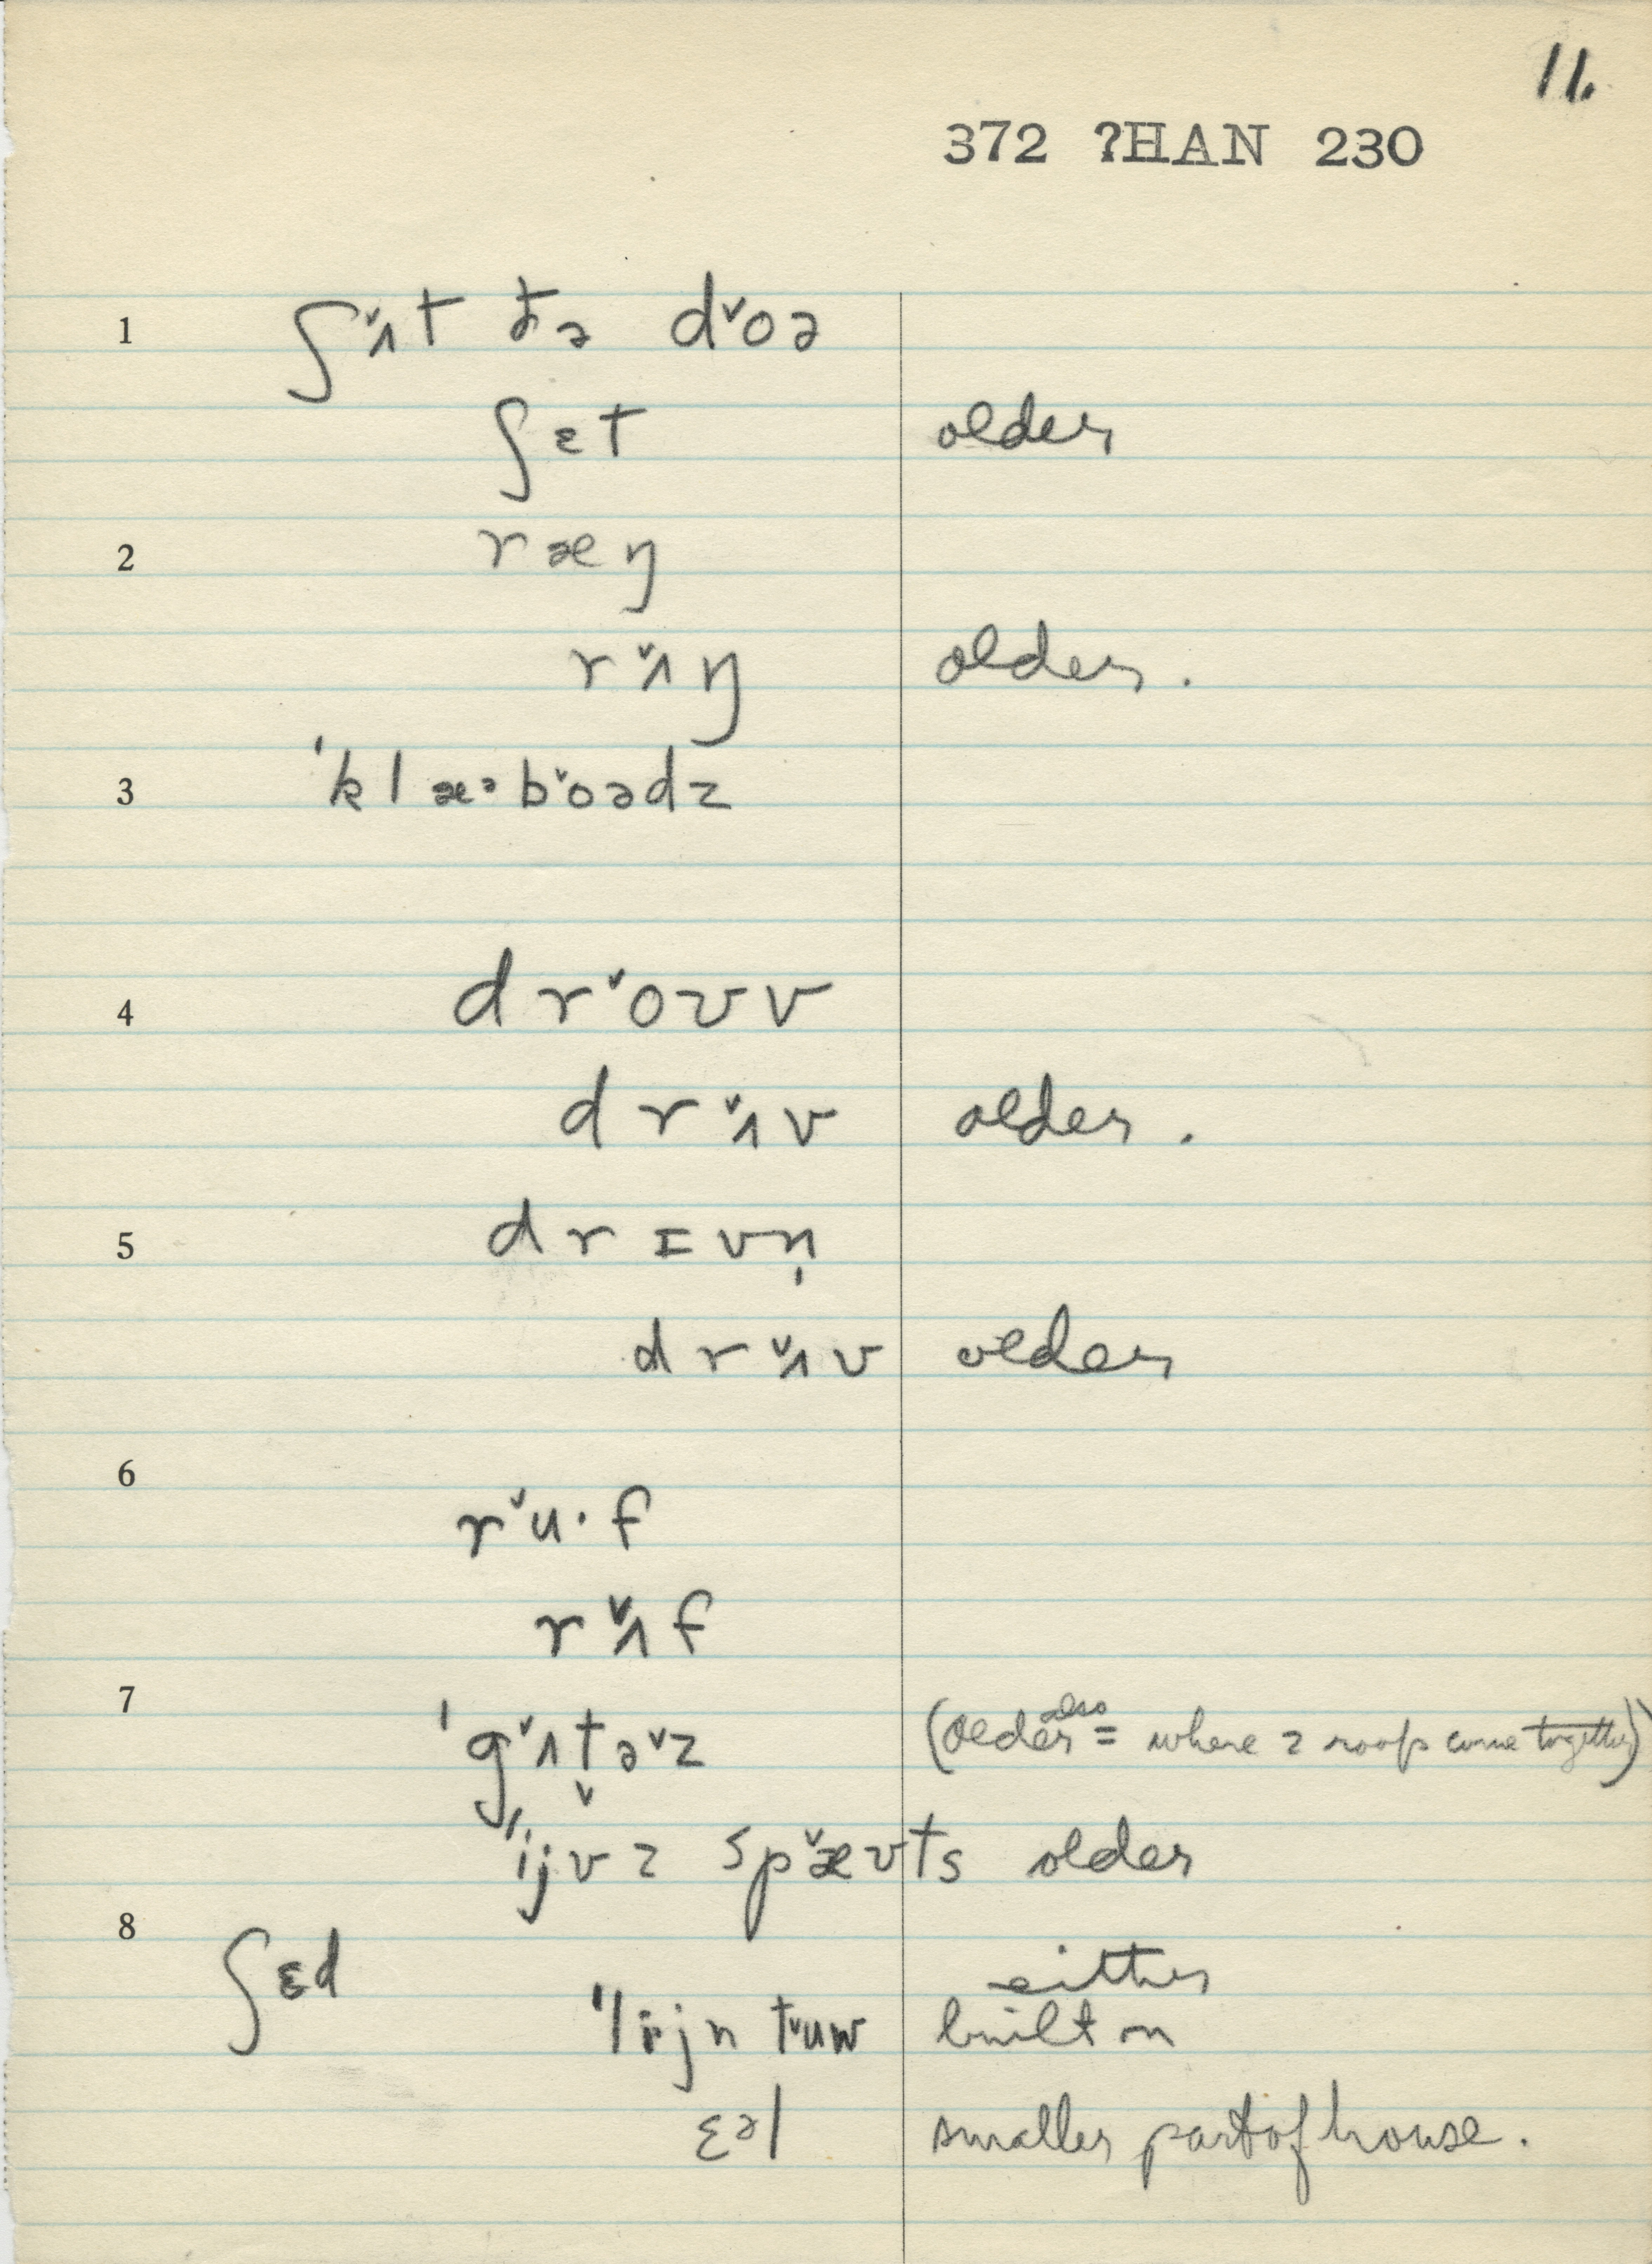 11.
372 ?HAN 230
1 ʃʌ̌t ðə dˇoə
ʃɛt older
2 ræŋ
rʌ̌ŋ older.
3 ˈklæᵊbˇoədz
4 drˇoʊv
drʌ̌v older.
5 drɪvn̩
drʌ̌v older
6 rˇu·f
rʌ̌f
7 ˈgʌ̌t̬əˇz (older also = where 2 roofs come together)
ˈijvz spæ̌ʊts older
8 ʃɛd either
ˈlijn tˇuw built on
ɛəl smaller part of house.